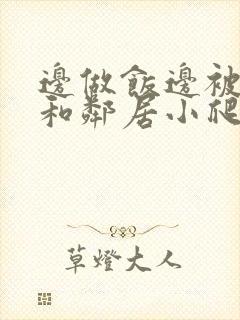 邊做飯邊被
和鄰居小爬
草燈大人